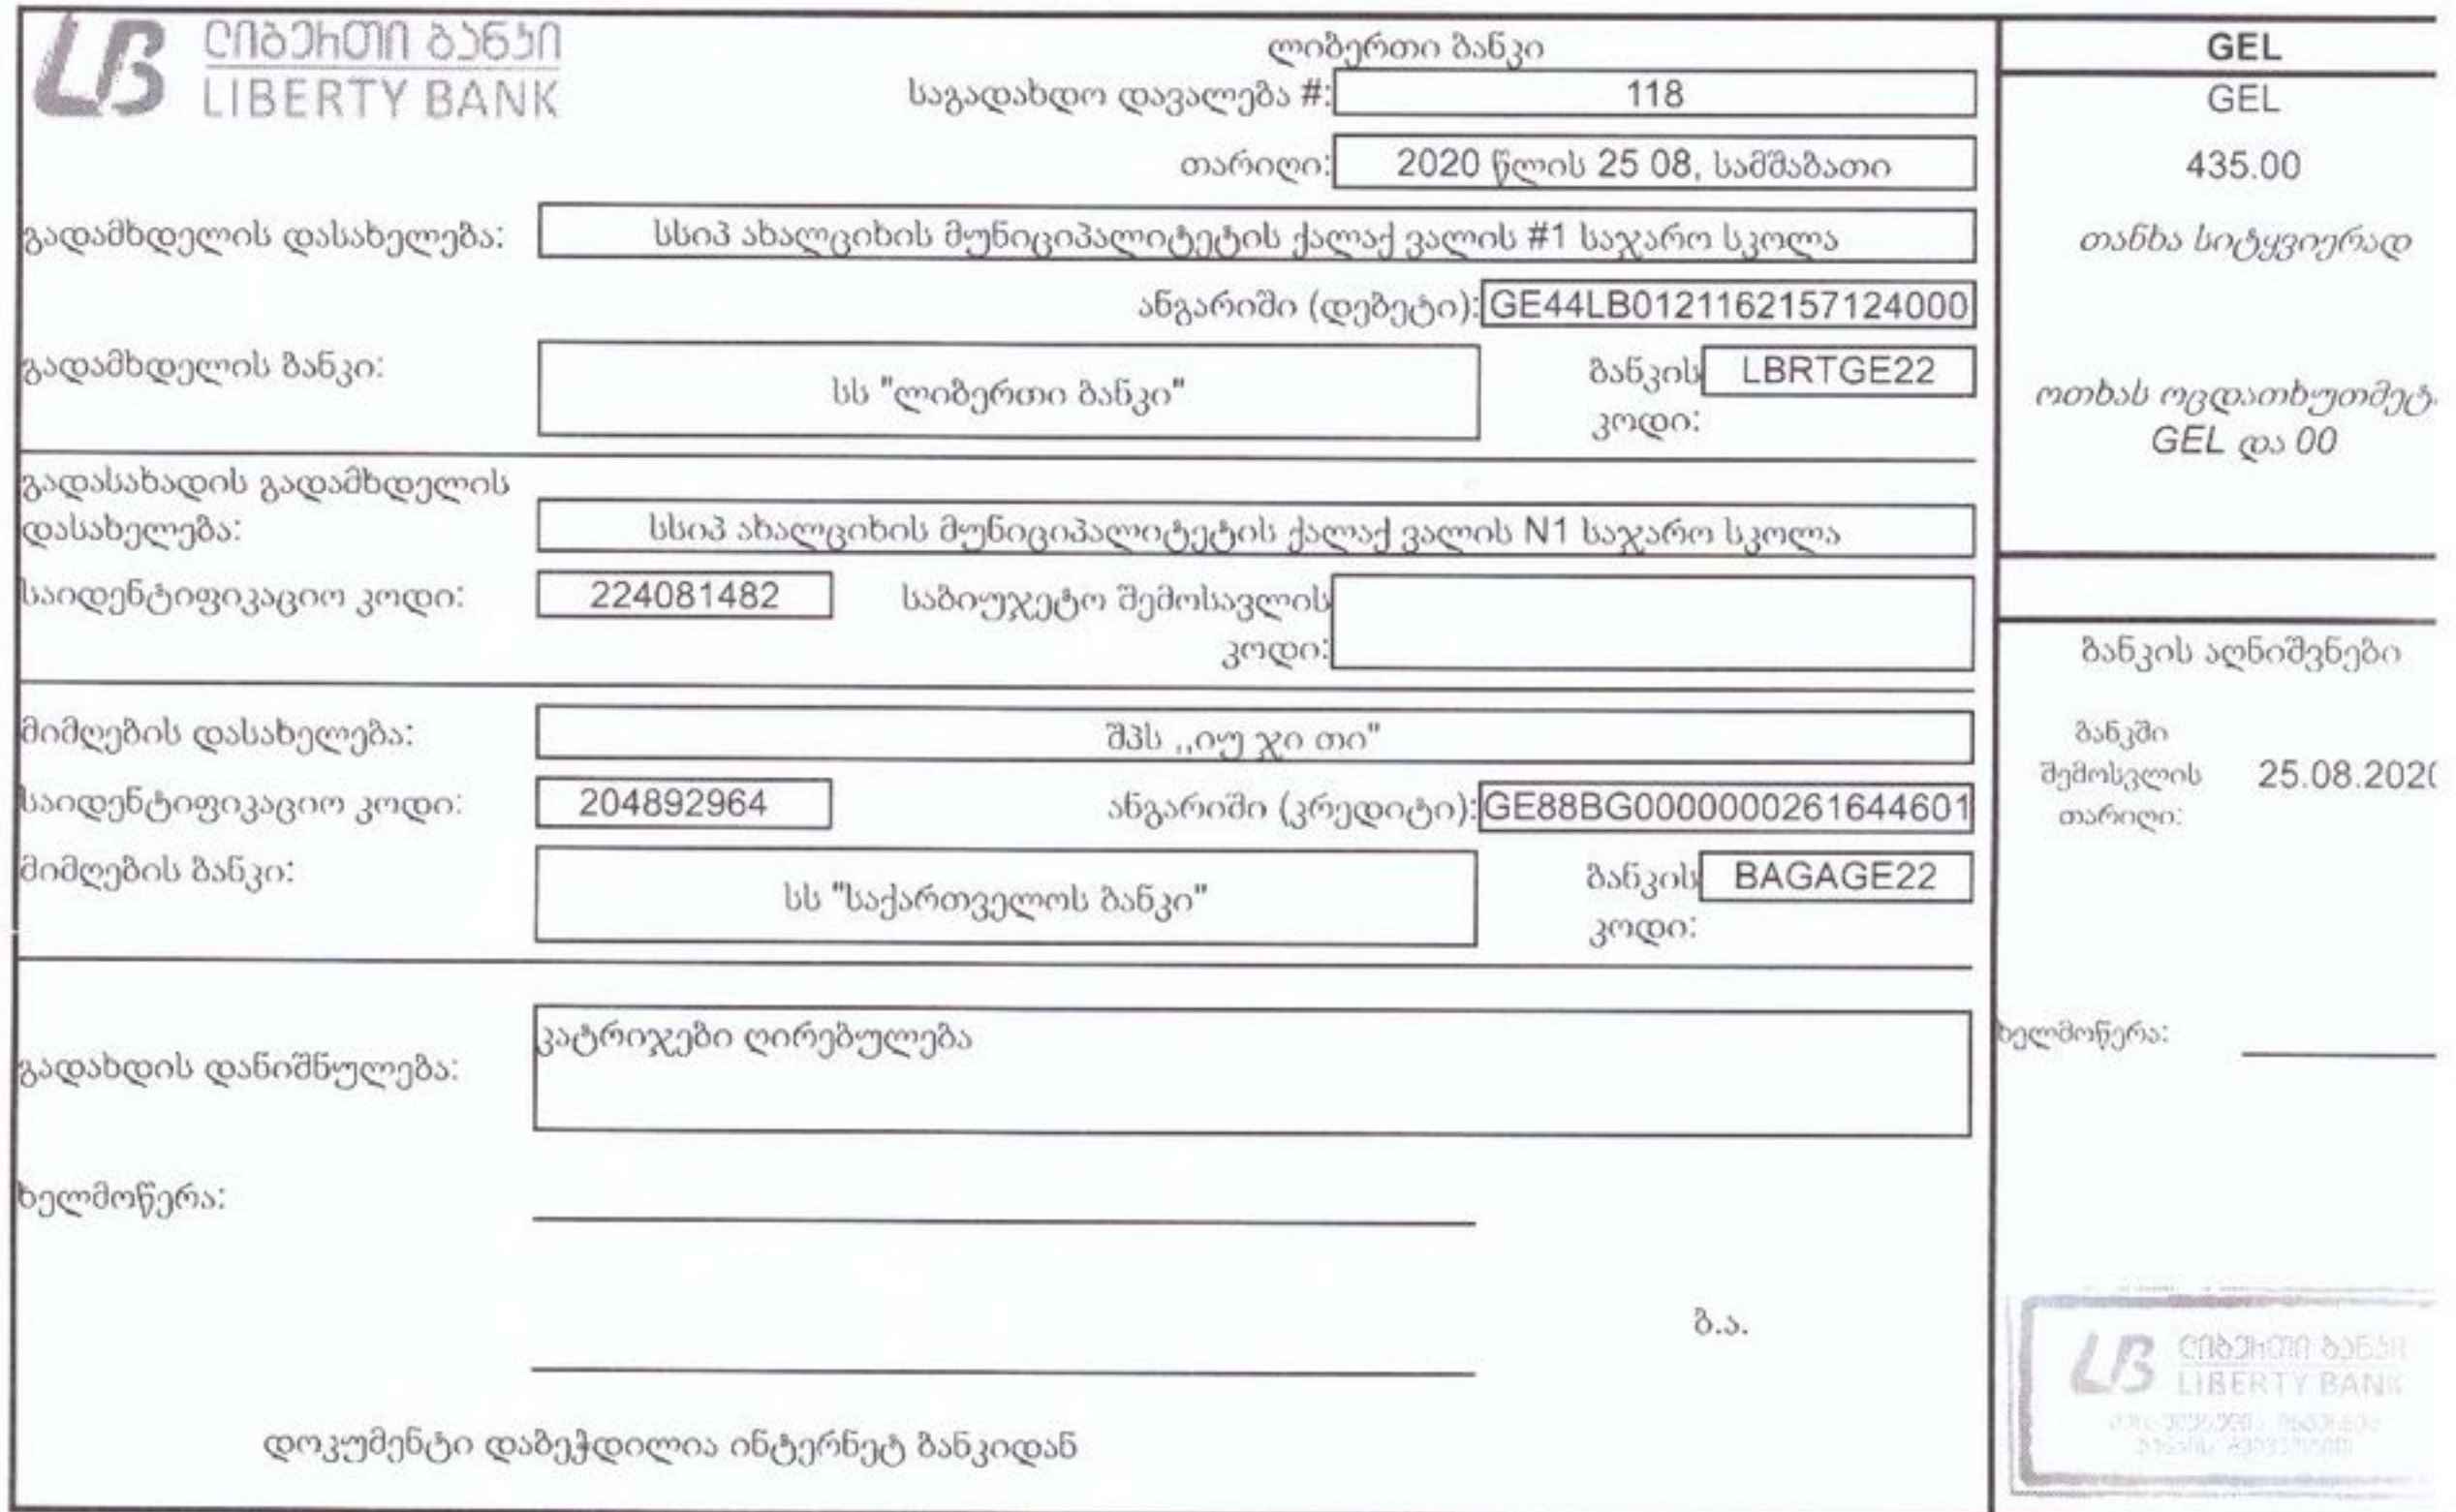 ლიბერთი ბანკი
LIBERTY BANK
ლიბერთი ბანკი
საგადახდო დავალება #: 118
თარიღი: 2020 წლის 25 08, სამშაბათი
გადამხდელის დასახელება: სსიპ ახალციხის მუნიციპალიტეტის ქალაქ ვალის #1 საჯარო სკოლა
ანგარიში (დებეტი): GE44LB0121162157124000
გადამხდელის ბანკი: სს "ლიბერთი ბანკი" ბანკის LBRTGE22
კოდი:
გადასახადის გადამხდელის
დასახელება: სსიპ ახალციხის მუნიციპალიტეტის ქალაქ ვალის N1 საჯარო სკოლა
საიდენტიფიკაციო კოდი: 224081482 საბიუჯეტო შემოსავლის
კოდი:
მიმღების დასახელება: შპს ,,იუ ჯი თი"
საიდენტიფიკაციო კოდი: 204892964 ანგარიში (კრედიტი): GE88BG0000000261644601
მიმღების ბანკი: სს "საქართველოს ბანკი" ბანკის BAGAGE22
კოდი:
კატრიჯები ღირებულება
გადახდის დანიშნულება:
ხელმოწერა:
ბ.ა.
დოკუმენტი დაბეჭდილია ინტერნეტ ბანკიდან
GEL
GEL
435.00
თანხა სიტყვიერად
ოთხას ოცდათხუთმეტ
GEL და 00
ბანკის აღნიშვნები
ბანკში
შემოსვლის 25.08.202
თარიღი:
ხელმოწერა:
ლიბერთი ბანკი
LIBERTY BANK